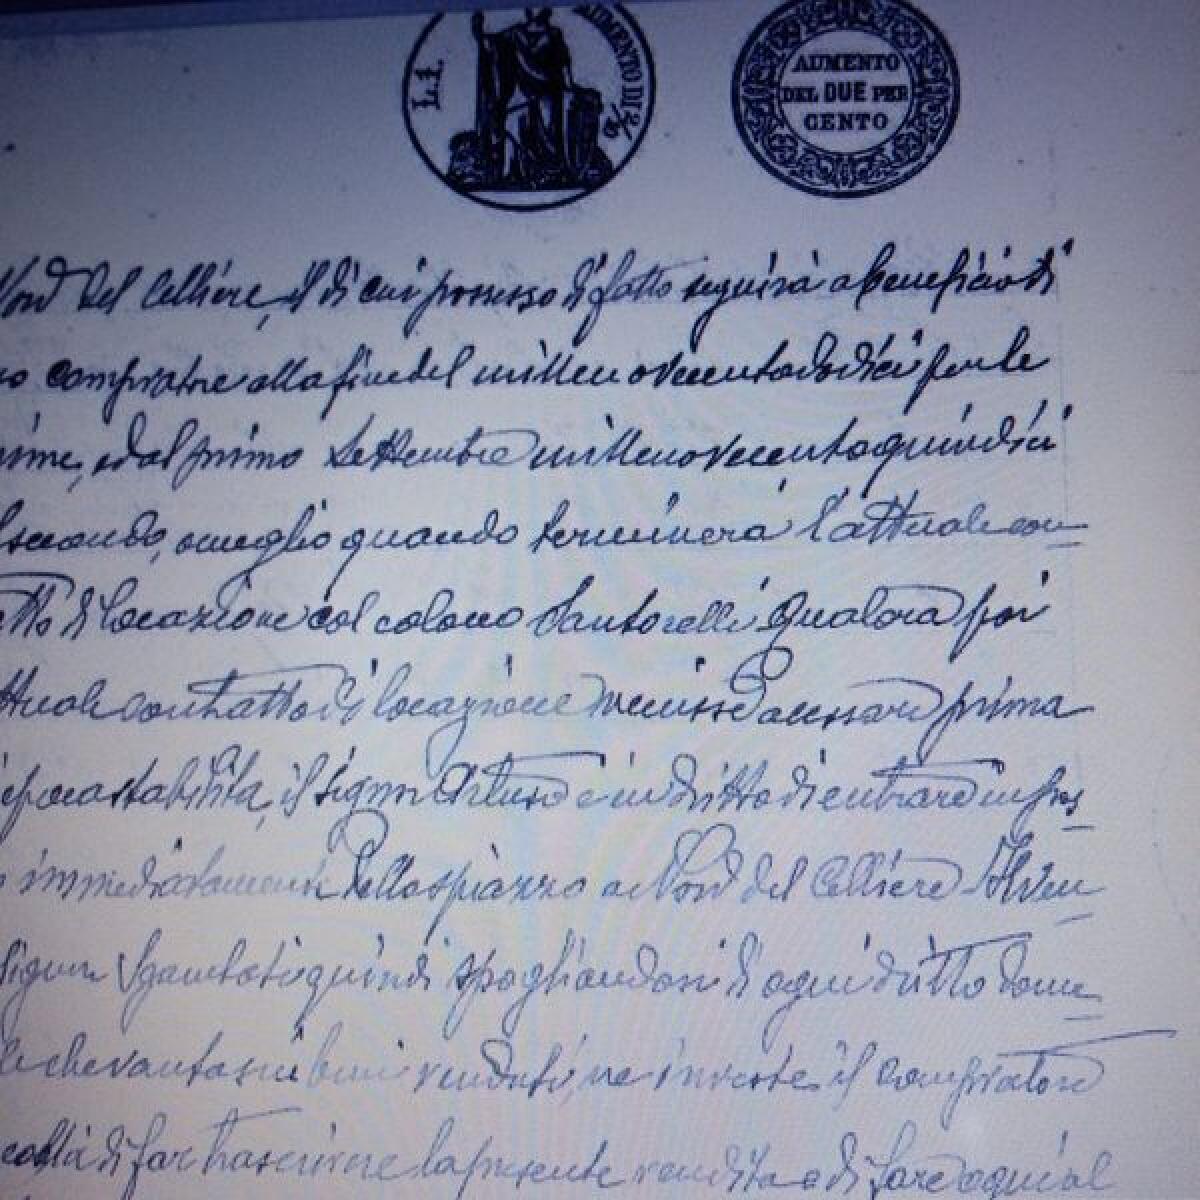 L.1. AUMENTO DI 2/10
AUMENTO
DEL DUE PER
CENTO
Nord del Celliere, il di cui possesso di fatto seguirà a beneficio di
compratore alla fine del millenovecentododici per le
prime, e dal primo Settembre millenovecentoquindici
secondo, o meglio quando terminerà l'attuale con-
atto di locazione col colono Santorelli. Qualora poi
ttuale contratto di locazione venisse a cessare prima
epoca stabilita, il signor è in dritto di entrare in pos-
immediatamente dello spiazzo a Nord del Celliere. Il ven-
signor Sgambati quindi spogliandosi di ogni dritto domi-
le che vanta sui beni venduti, ne investe il compratore
coltà di far trascrivere la presente vendita e di fare ogni al